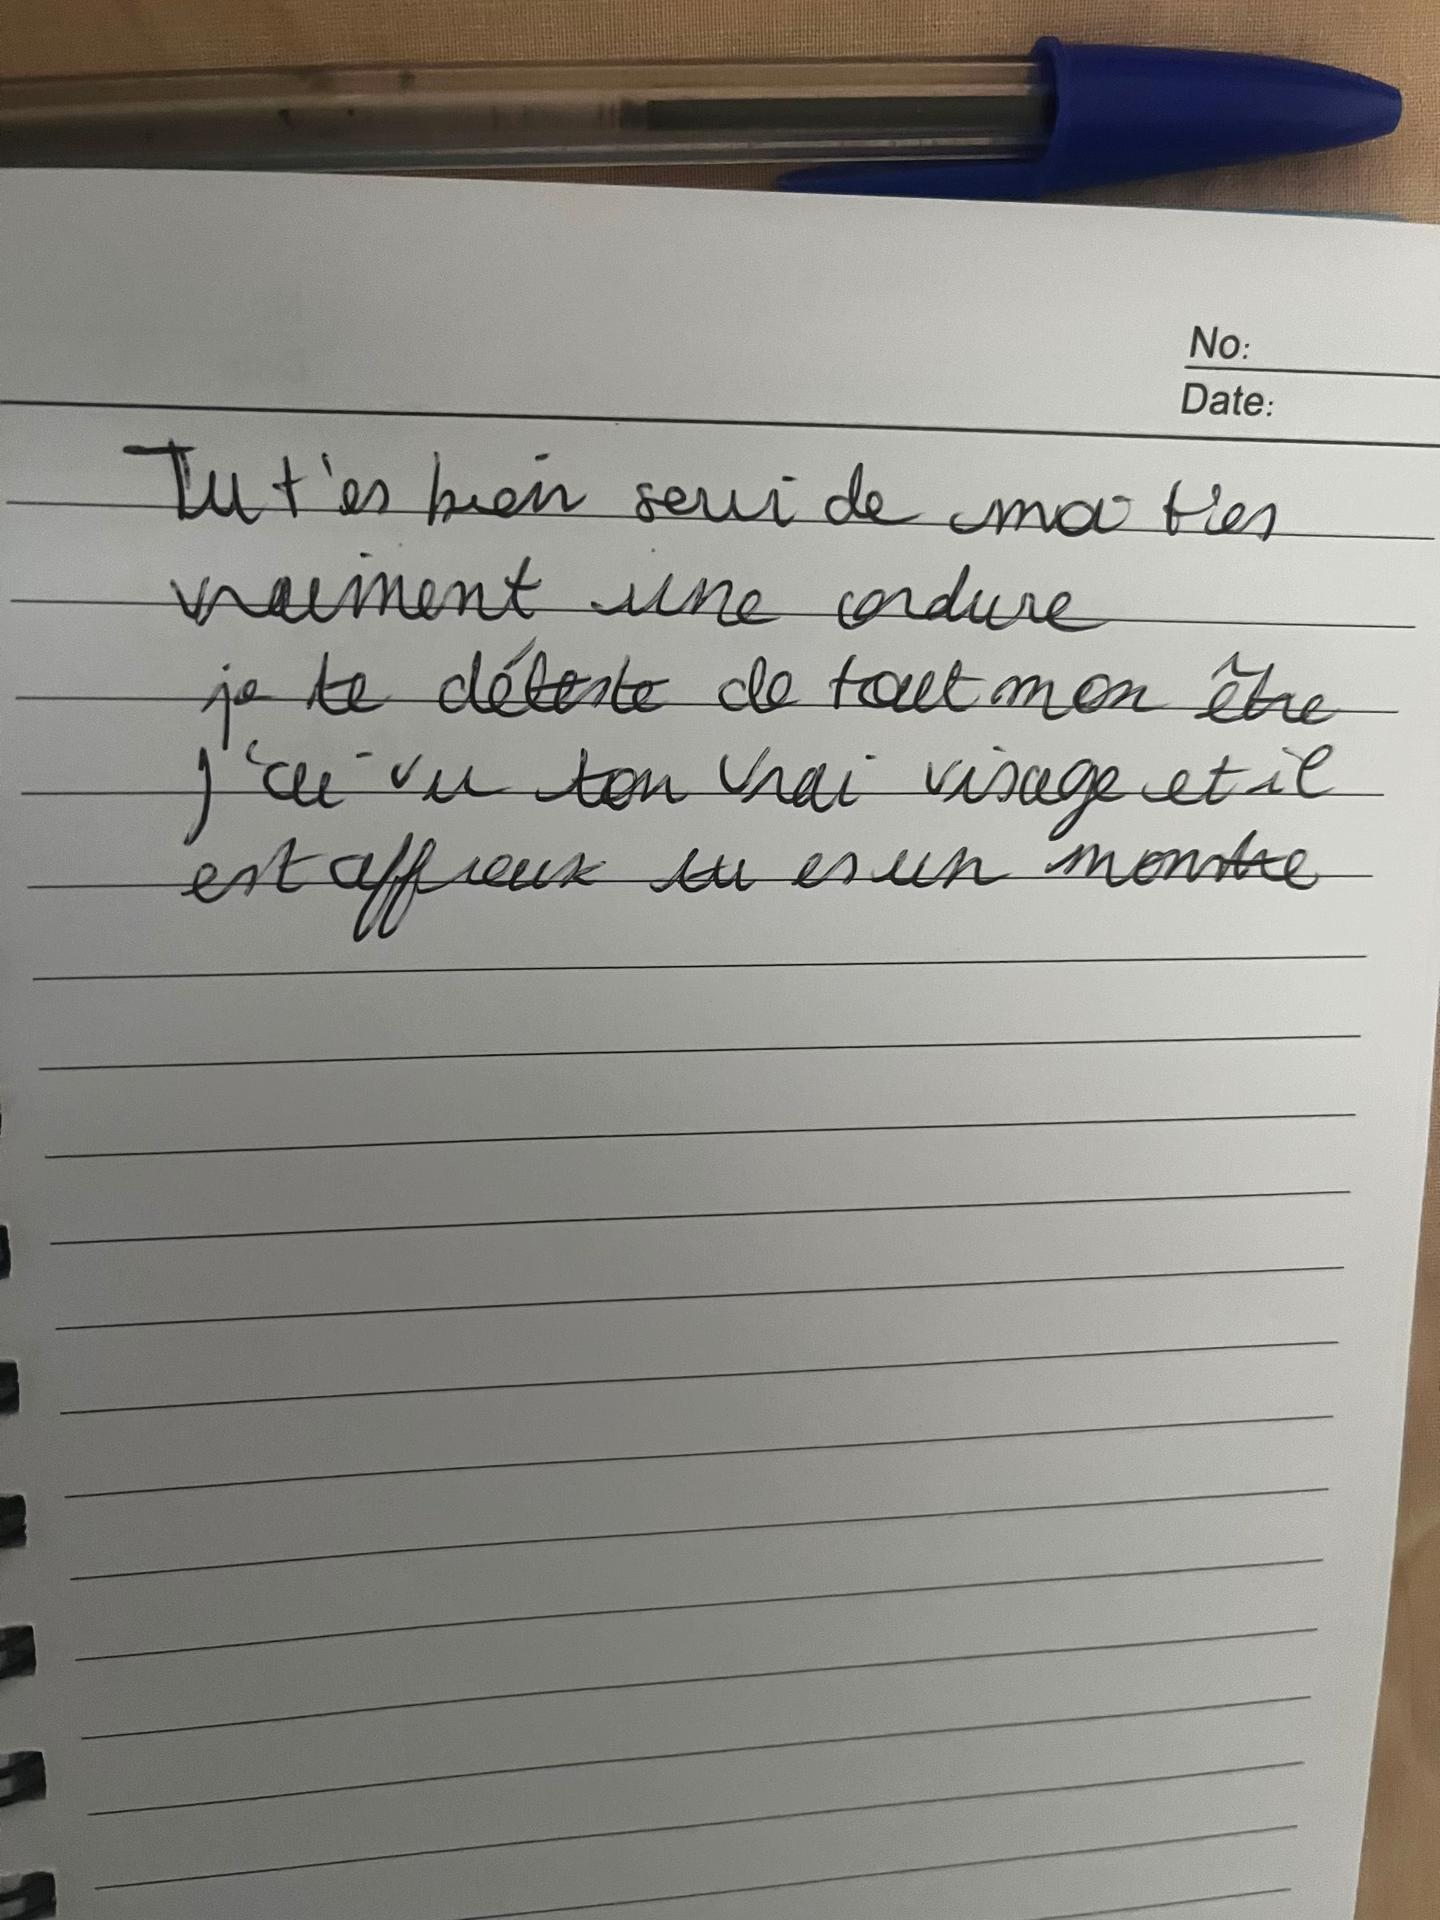 No:
Date:
Tu t'es bien servi de moi t'es
vraiment une ordure
je te déteste de tout mon être
j'ai vu ton vrai visage et il
est affreux tu es un monstre